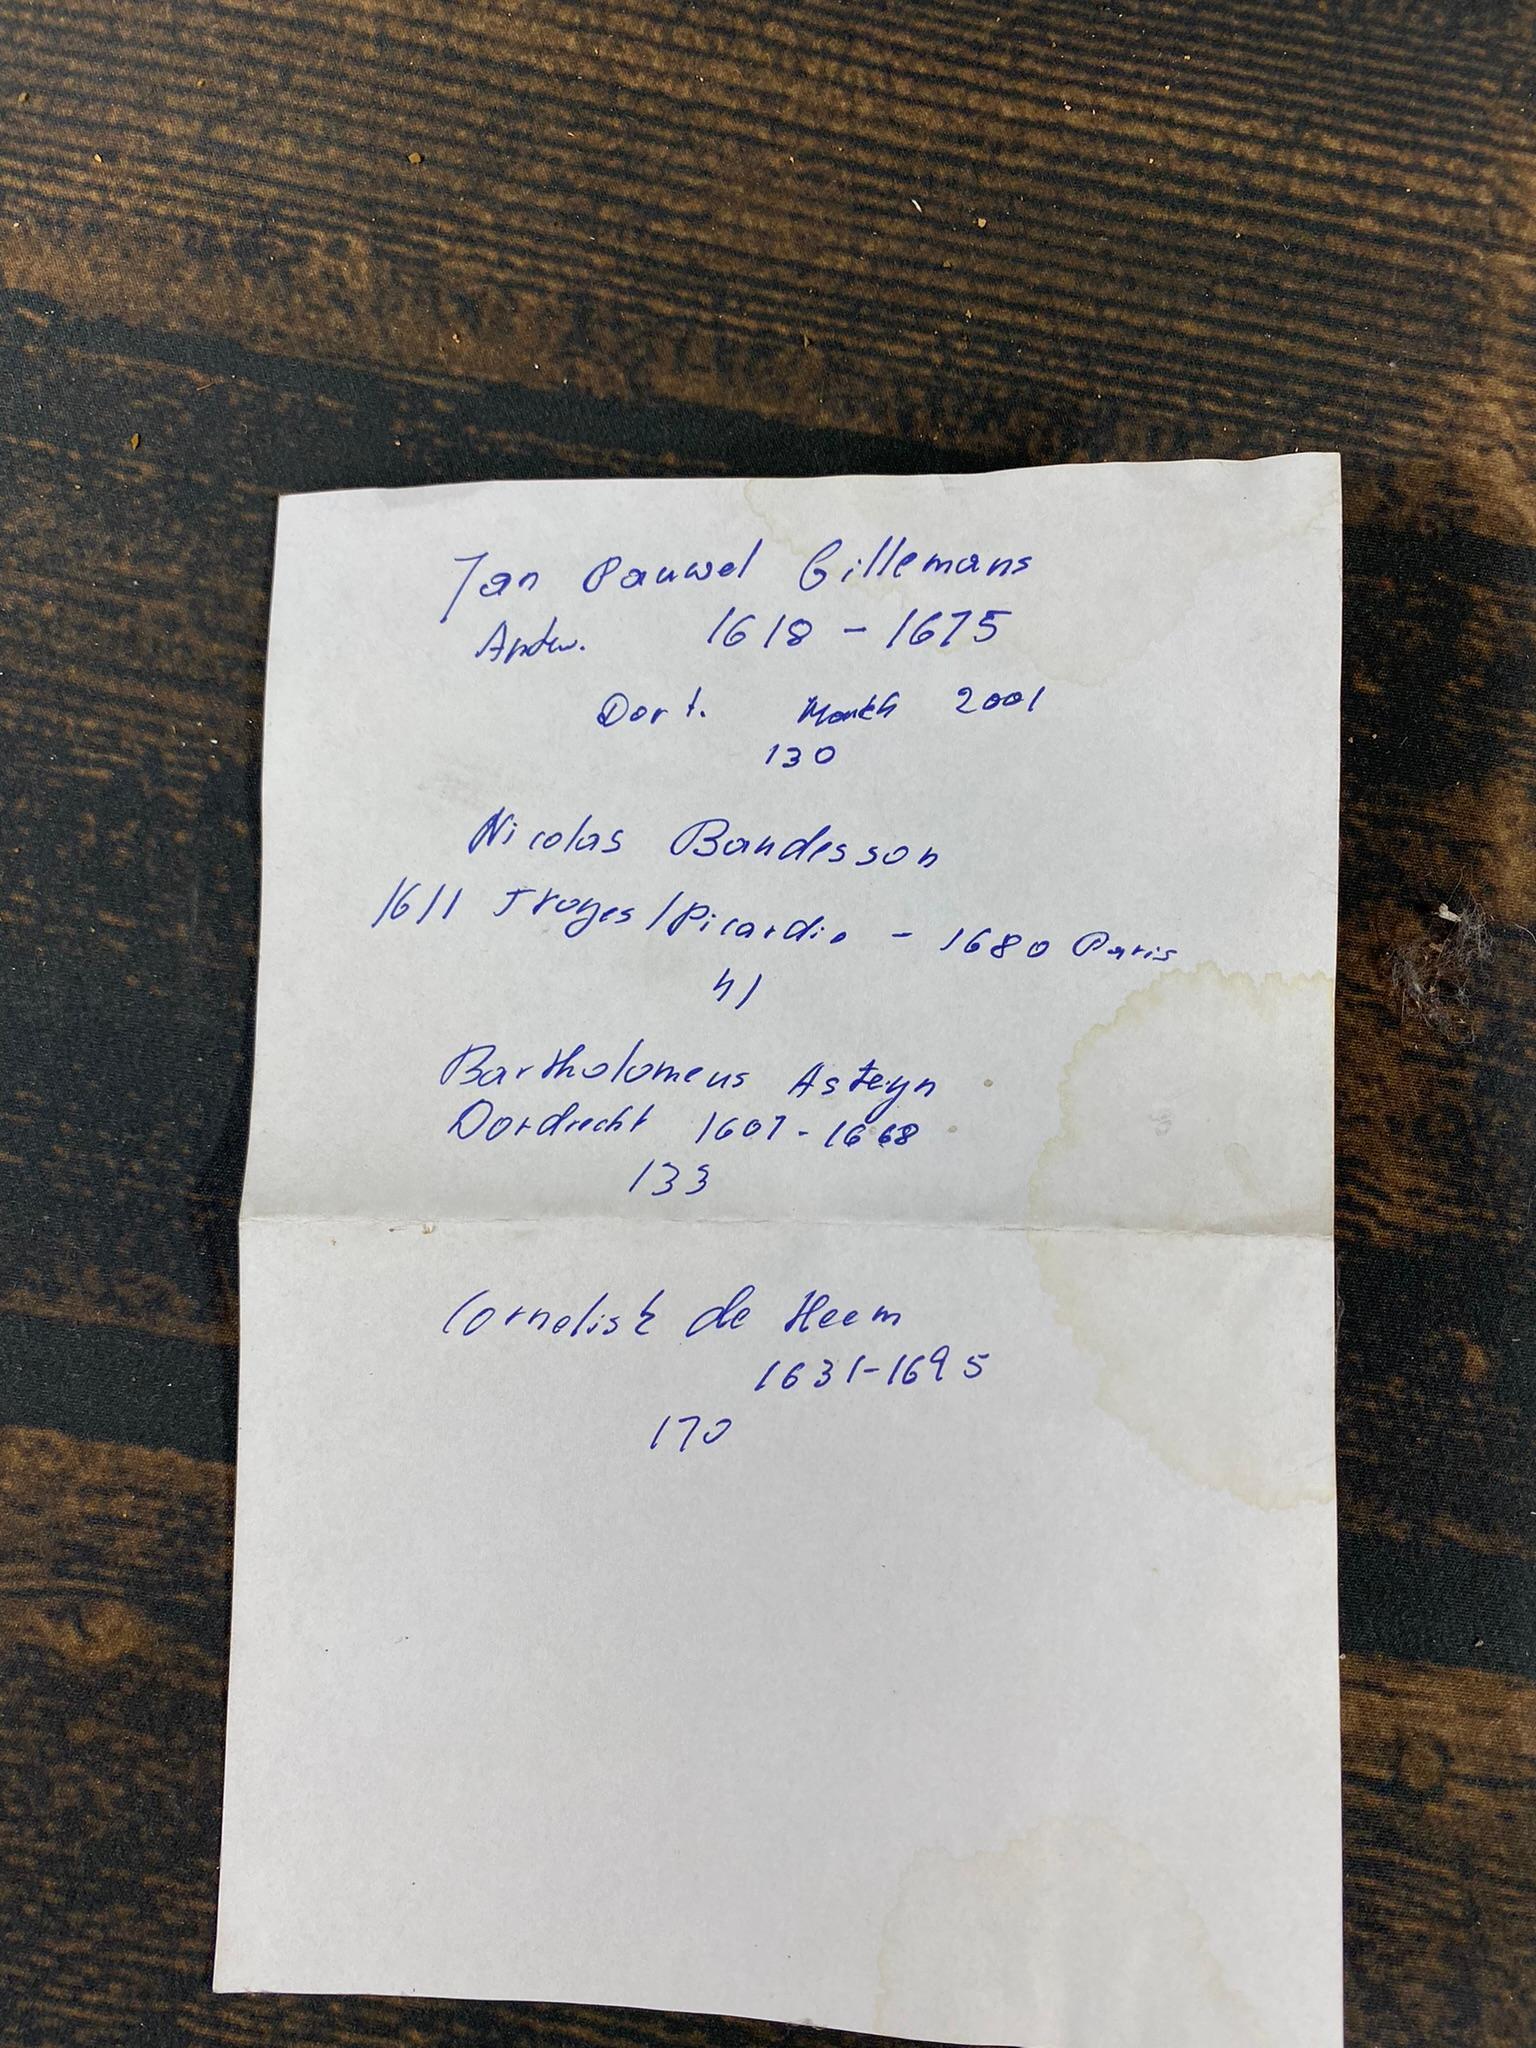 Jan Pauwel Gillemans
Antw. 1618 - 1675
Dort. Month 2001
130
Nicolas Baudesson
1611 Troyes/Picardie - 1680 Paris
41
Bartholomeus Asteyn
Dordrecht 1607 - 1668
133
Cornelisz de Heem
1631-1695
170